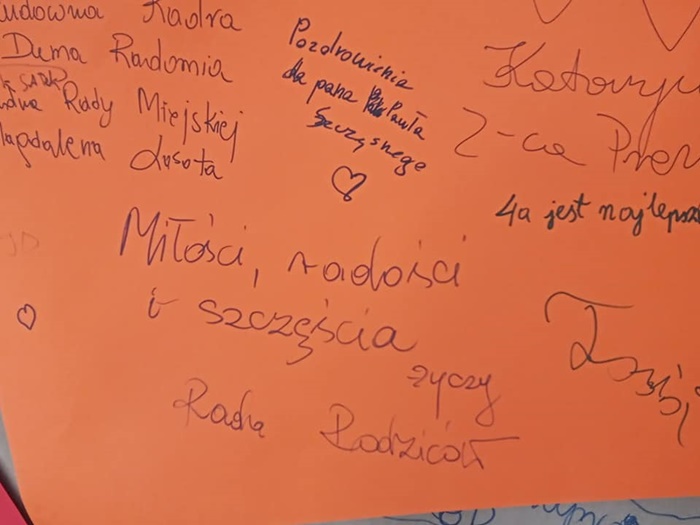 Kadra
Duma Radomia
Rady Miejskiej
Magdalena Lasota
Pozdrowienia
dla pana Pawła
Szczęsnego
Katarzyn
Z-ca Prez
4a jest najlepsz
Miłości, radości
i szczęścia
życzy
Rada Rodziców